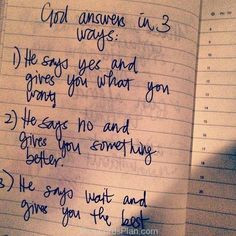 God answers in 3
ways:
1) He says yes and
gives you what you
want
2) He says no and
gives you something
better.
3) He says wait and
gives you the best